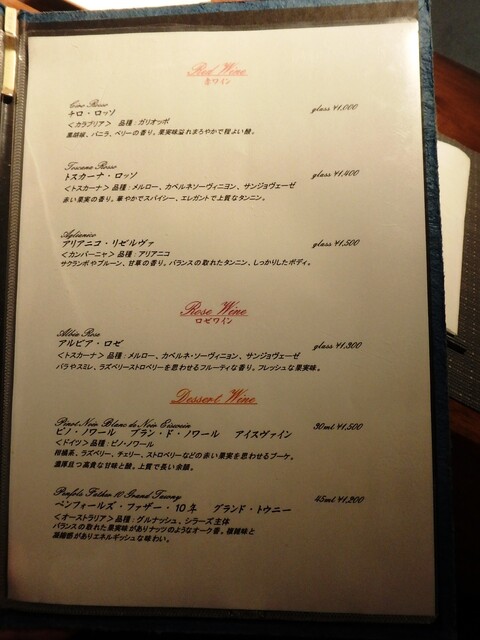 Red Wine
赤ワイン
Ciro Rosso
チロ・ロッソ
glass ¥1,000
＜カラブリア＞ 品種：ガリオッポ
黒胡椒、バニラ、ベリーの香り。果実味溢れまろやかで程よい酸。
Toscana Rosso
トスカーナ・ロッソ
glass ¥1,400
＜トスカーナ＞品種：メルロー、カベルネソーヴィニヨン、サンジョヴェーゼ
赤い果実の香り。華やかでスパイシー、エレガントで上質なタンニン。
Aglianico
アリアニコ・リゼルヴァ
glass ¥1,500
＜カンパーニャ＞品種：アリアニコ
サクランボやプルーン、甘草の香り。バランスの取れたタンニン、しっかりしたボディ。
Rose Wine
ロゼワイン
Albia Rose
アルビア・ロゼ
glass ¥1,300
＜トスカーナ＞品種：メルロー、カベルネ・ソーヴィニヨン、サンジョヴェーゼ
バラやスミレ、ラズベリーストロベリーを思わせるフルーティな香り。フレッシュな果実味。
Dessert Wine
Pinot Noir Blanc de Noir Eiswein
ピノ・ノワール ブラン・ド・ノワール アイスヴァイン
30ml ¥1,500
＜ドイツ＞品種：ピノ・ノワール
柑橘系、ラズベリー、チェリー、ストロベリーなどの赤い果実を思わせるブーケ。
濃厚且つ高貴な甘味と酸。上質で長い余韻。
Penfols Father 10 Grand Tawny
ペンフォールズ・ファザー・10年 グランド・トウニー
45ml ¥1,200
＜オーストラリア＞品種：グルナッシュ、シラーズ主体
バランスの取れた果実味がありナッツのようなオーク香。複雑味と
凝縮感がありエネルギッシュな味わい。